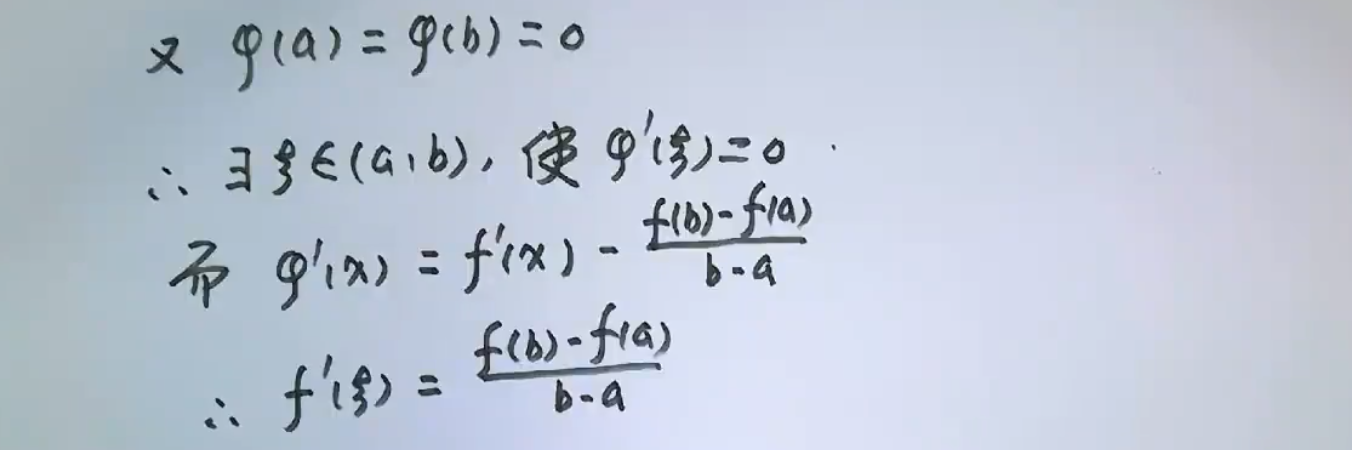 又 φ(a) = φ(b) = 0
∴ ∃ ξ ∈ (a, b), 使 φ'(ξ) = 0
而 φ'(x) = f'(x) - \frac{f(b) - f(a)}{b - a}
∴ f'(ξ) = \frac{f(b) - f(a)}{b - a}